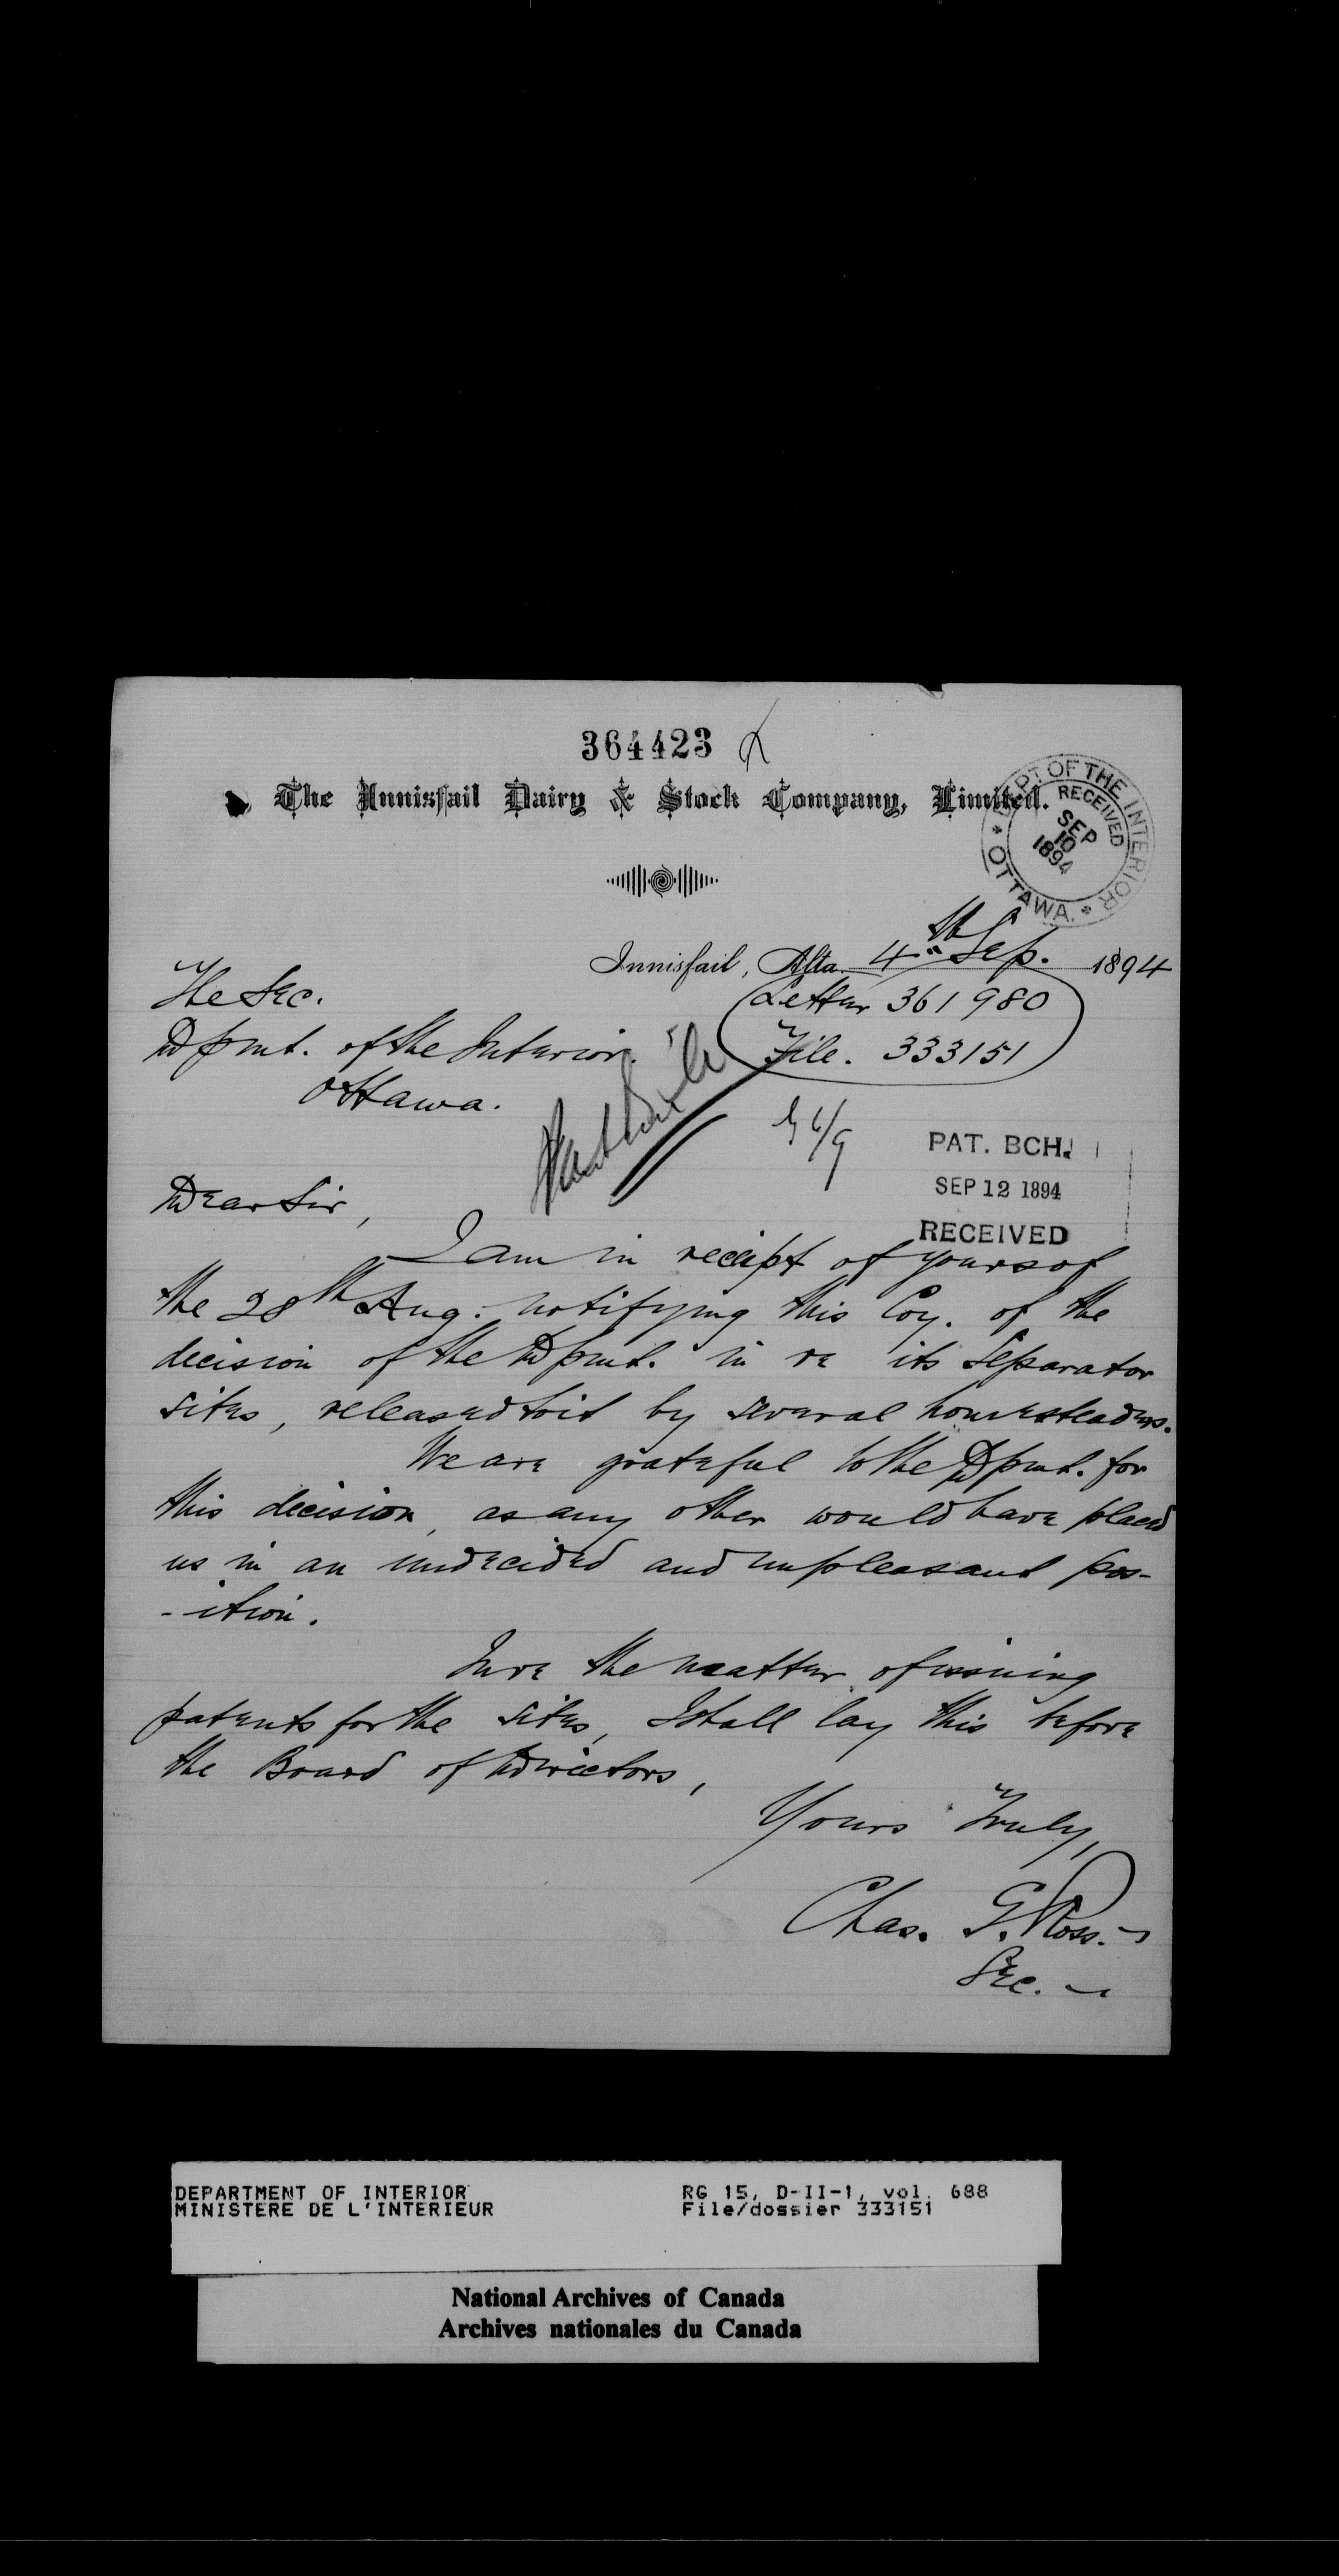 364423
The Innisfail Dairy & Stock Company, Limited.
DEPT. OF THE INTERIOR
RECEIVED
SEP
10
1894
* OTTAWA. *
Innisfail, Alta. 4th Sep. 1894
The Sec.
Letter 361980
Dpmt. of the Interior.
File. 333151
Ottawa.
PAT. BCH.
SEP 12 1894
RECEIVED
Dear Sir,
I am in reciept of yours of
the 28th Aug. notifying this Coy. of the
decision of the Dpmt. in re its Separator
sites, released to it by several homesteaders.
We are grateful to the Dpmt. for
this decision, as any other would have placed
us in an undecided and unpleasant pos-
-ition.
In re the matter of issuing
patents for the sites, I shall lay this before
the Board of Directors,
Yours Truly,
Chas. G. Ross.
Sec.
DEPARTMENT OF INTERIOR RG 15, D-II-1, vol. 688
MINISTERE DE L'INTERIEUR File/dossier 333151
National Archives of Canada
Archives nationales du Canada